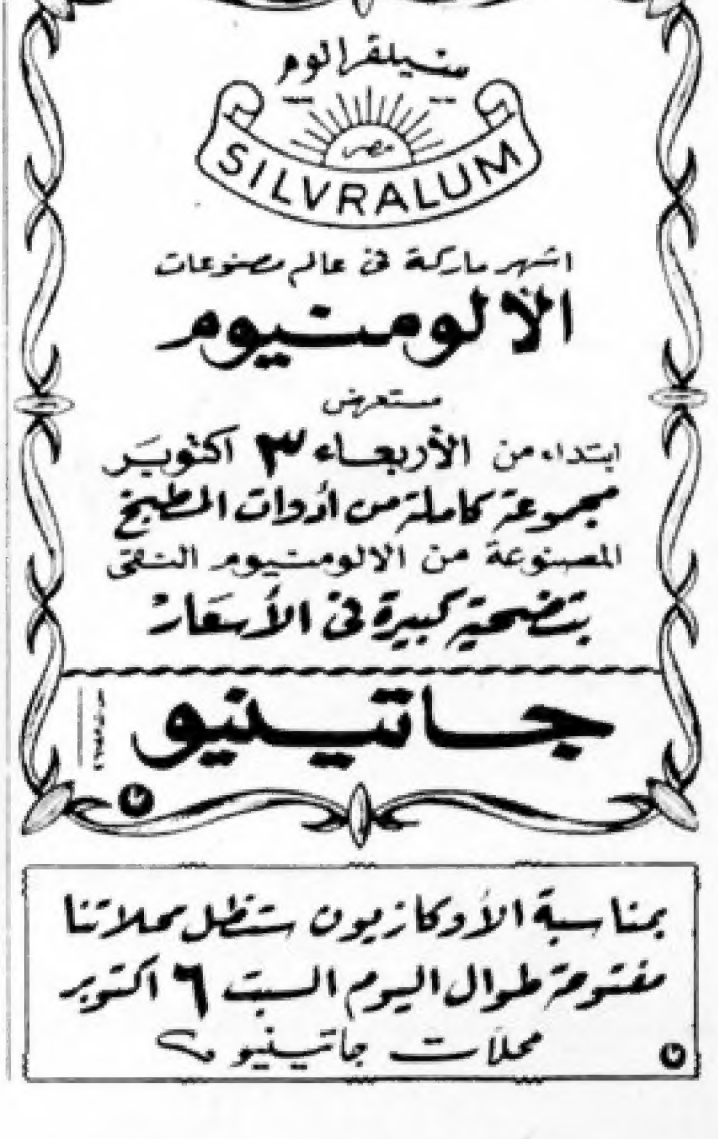 سيلڤرالوم
مصر
SILVRALUM
اشهر ماركة فى عالم مصنوعات
الألومنيوم
ستعرض
ابتداء من الأربعاء ٣ اكتوبر
مجموعة كاملة من أدوات المطبخ
المصنوعة من الالومنيوم النقى
بتضحية كبيرة فى الأسعار
جاتينيو
بمناسبة الأوكازيون ستظل محلاتنا
مفتوحة طوال اليوم السبت ٦ اكتوبر
محلات جاتينيو